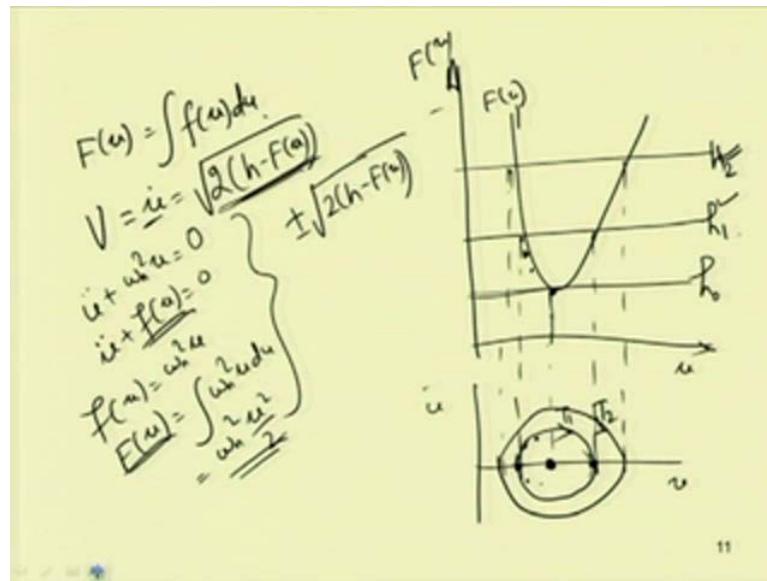 F(u) = ∫ f(u) du
V = u̇ = √2(h-F(u))
± √2(h-F(u))
ü + ωn²u = 0
ü + f(u) = 0
f(u) = ωn²u
F(u) = ∫ ωn²u du
= ωn² u²/2
F(u)
F(u)
h₂
h₁
h₀
u
u̇
Γ₁
Γ₂
u
11